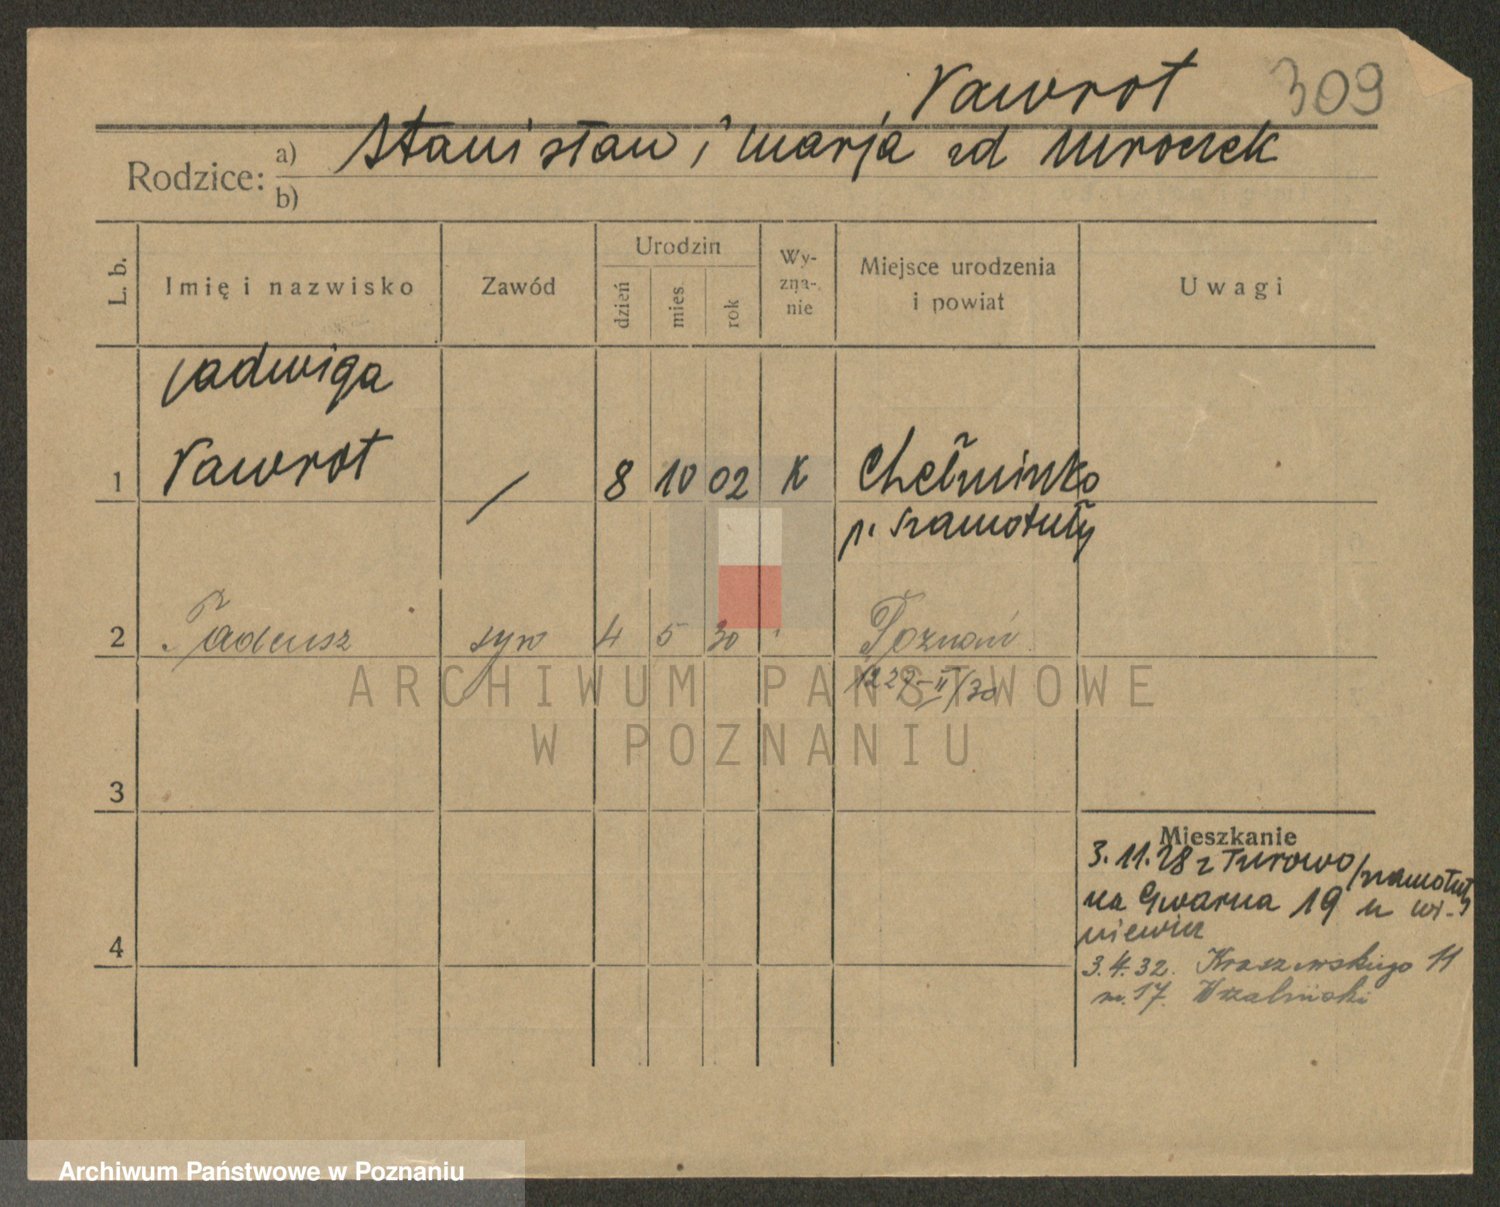 Nawrot 309
Stanisław i Marja zd Mroczek
Rodzice: a)
b)
L. b. Imię i nazwisko Zawód Urodzin dzień mies. rok Wy-zna-nie Miejsce urodzenia i powiat Uwagi
Jadwiga
1 Nawrot / 8 10 02 K Chełminko
p. Szamotuły
2 Tadeusz syn 4 5 30 Poznań
1227-II/30
ARCHIWUM PAŃSTWOWE
W POZNANIU
3
Mieszkanie
3.11.28 z Turowo/Szamotuły
na Gwarna 19 u Wi-
niewicz
4
3.4.32. Kraszewskiego 11
m. 17.
Archiwum Państwowe w Poznaniu